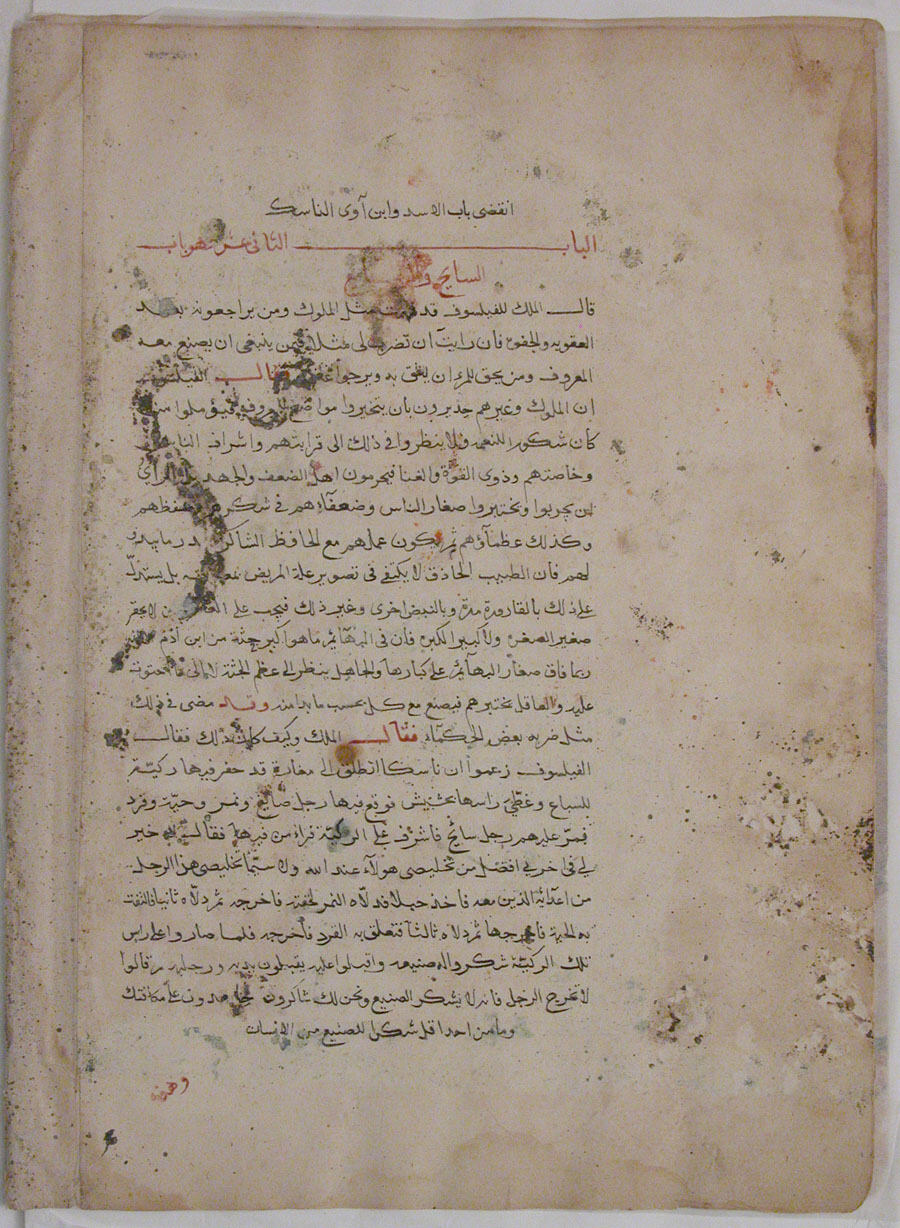 انقضى باب الاسد وابن آوى الناسك
الباب الثاني عشر وهو باب
السايح والصايغ
قال الملك للفيلسوف قد فهمت مثل الملوك ومن يراجعونه بعد
العقوبه والجفوه فان رايت ان تضرب لي مثلا فيمن ينبغي ان يصنع معه
المعروف ومن يحق للمرء ان يثق به ويرجوا قال الفيلسوف
ان الملوك وغيرهم جديرون بان يتخيروا مواضع المعروف
كان شكورا للنعمه ولا ينظروا في ذلك الى قرابتهم واشراف الناس
وخاصتهم وذوى القوة والغنا فيحرمون اهل الضعف والجهد بل الراي
ان يجربوا ويختبروا صغار الناس وضعفآءهم في شكرهم وحفظهم
وكذلك عظمآؤهم ثم يكون عملهم مع الحافظ الشاكر بقدر ما يبدو
لهم فان الطبيب الحاذق لا يكتفي في تصوير علة المريض بل يستدل
على ذلك بالقارورة مرة وبالنبض اخرى وغير ذلك فيجب على لا يحقر
صغير الصغره ولا كبير الكبره فان في البهآئم ما هو اكبر جثة من ابن آدم
ربما فاق صغار البهآئم على كبارها والجاهل ينظر الى عظم الجثة
عليه والعاقل يختبرهم فيصنع مع كل بحسب ما بدا منه وقد مضى في ذلك
مثل ضربه بعض الحكمآء فقال الملك وكيف كان ذلك فقال
الفيلسوف زعموا ان ناسكا انطلق الى مغارة قد حفر فيها ركيّة
للسباع وغطى راسها بحشيش فوقع فيها رجل صايغ ونمر وحيّة وقرد
فمرّ عليهم رجل سايح فاشرف على الركيّة فراء من فيها فقال خير
لي في اخرتي افضل من تخليصي هولآء عند الله ولا سيّما تخليصي هذا الرجل
من اعدآئه الذين معه فاخذ حبلا فدلّاه النمر لخفته فاخرجه ثم دلّاه ثانيا فالتفت
به الحية فاخرجها ثم دلاه ثالثا فتعلق به القرد فاخرجه فلما صاروا على راس
تلك الركيّة شكروا له صنيعه واقبلوا عليه يقبلون يديه ورجليه وقالوا
لا تخرج الرجل فانه لا يشكر الصنيع ونحن لك شاكرون على مكافاتك
وما من احد اقل شكرا للصنيع من الانسان